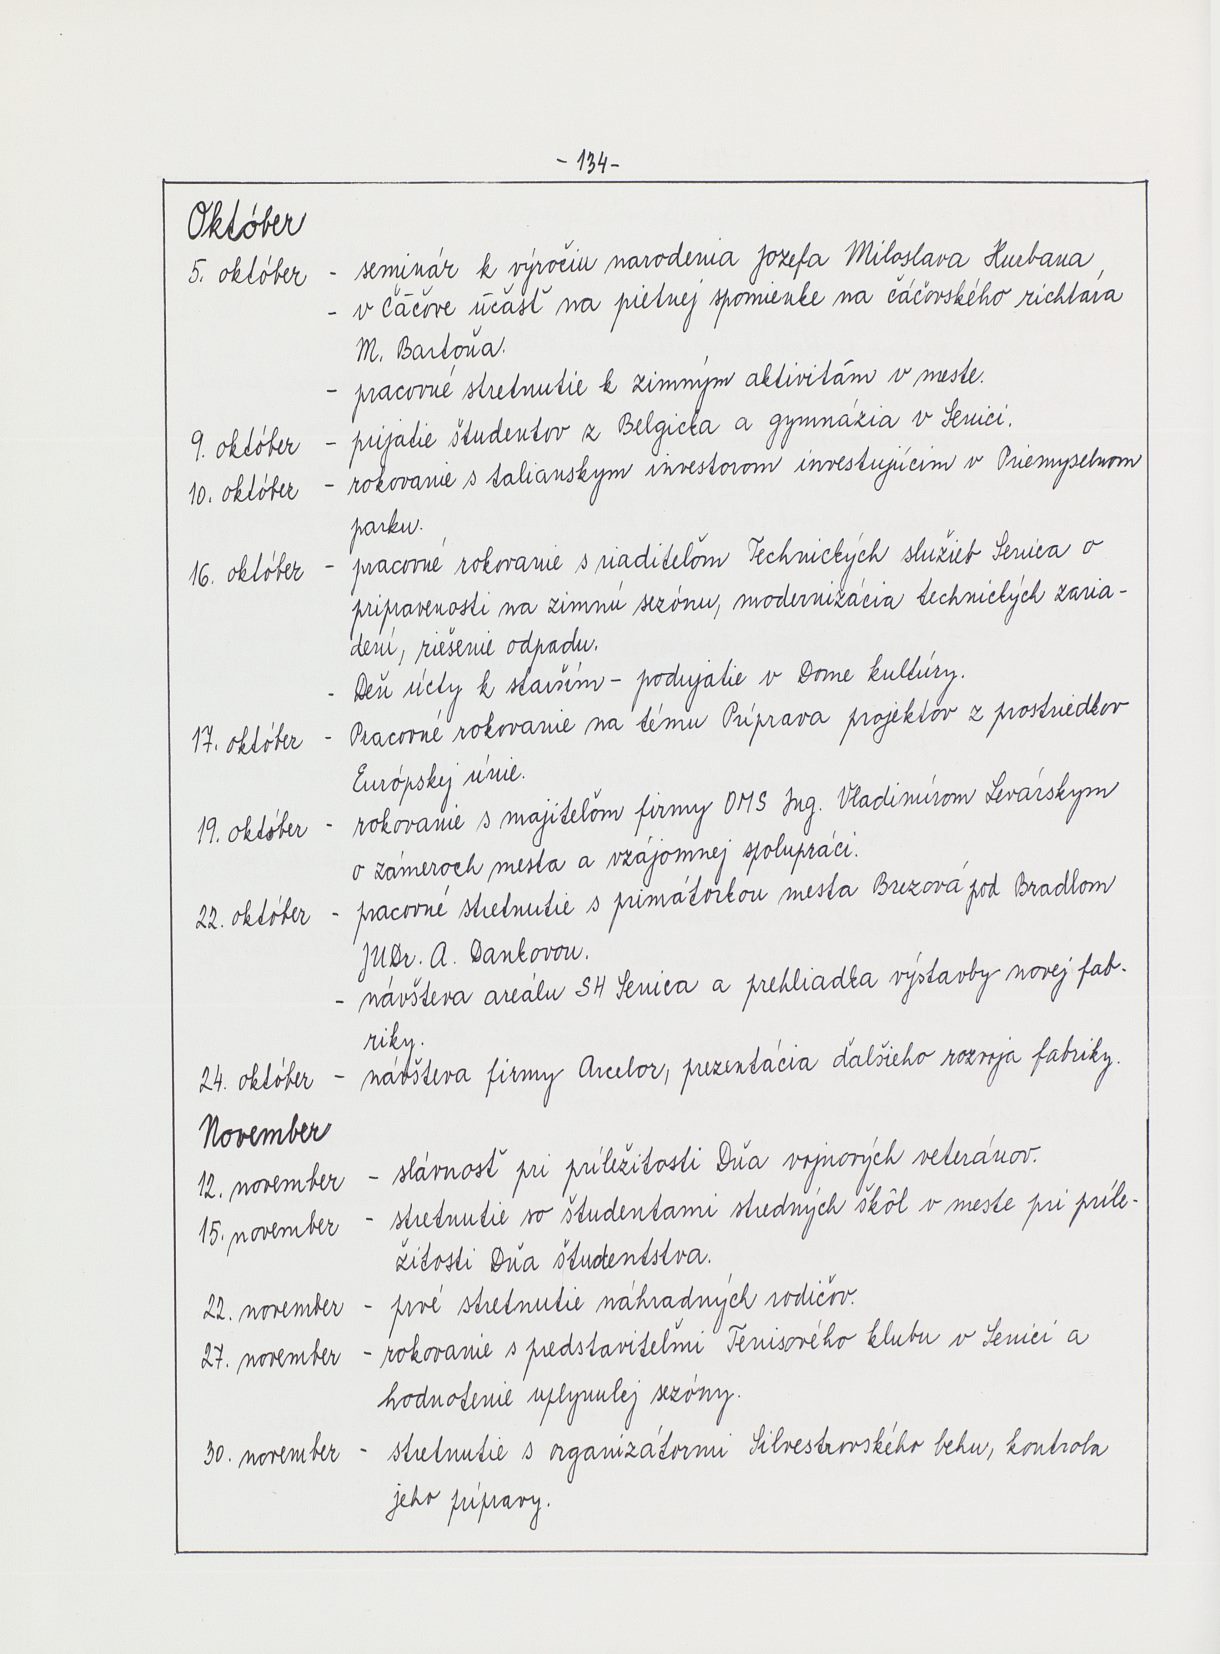 - 134 -
Október
5. október - seminár k výročiu narodenia Jozefa Miloslava Hurbana,
- v Čáčove účasť na pietnej spomienke na čáčovského richtára
M. Bartoňa.
- pracovné stretnutie k zimným aktivitám v meste.
9. október - prijatie študentov z Belgicka a gymnázia v Senici.
10. október - rokovanie s talianskym investorom investujúcim v Priemyselnom
parku.
16. október - pracovné rokovanie s riaditeľom Technických služieb Senica o
pripravenosti na zimnú sezónu, modernizácia technických zaria-
dení, riešenie odpadu.
- Deň úcty k starším - podujatie v Dome kultúry.
17. október - Pracovné rokovanie na tému Príprava projektov z prostriedkov
Európskej únie.
19. október - rokovanie s majiteľom firmy OMS Ing. Vladimírom Levárskym
o zámeroch mesta a vzájomnej spolupráci.
22. október - pracovné stretnutie s primátorkou mesta Brezová pod Bradlom
JUDr. A. Dankovou.
- návšteva areálu SH Senica a prehliadka výstavby novej fab-
riky.
24. október - návšteva firmy Arcelor, prezentácia ďalšieho rozvoja fabriky.
November
12. november - slávnosť pri príležitosti Dňa vojnových veteránov.
15. november - stretnutie so študentami stredných škôl v meste pri príle-
žitosti Dňa študentstva.
22. november - prvé stretnutie náhradných rodičov.
27. november - rokovanie s predstaviteľmi Tenisového klubu v Senici a
hodnotenie uplynulej sezóny.
30. november - stretnutie s organizátormi Silvestrovského behu, kontrola
jeho prípravy.